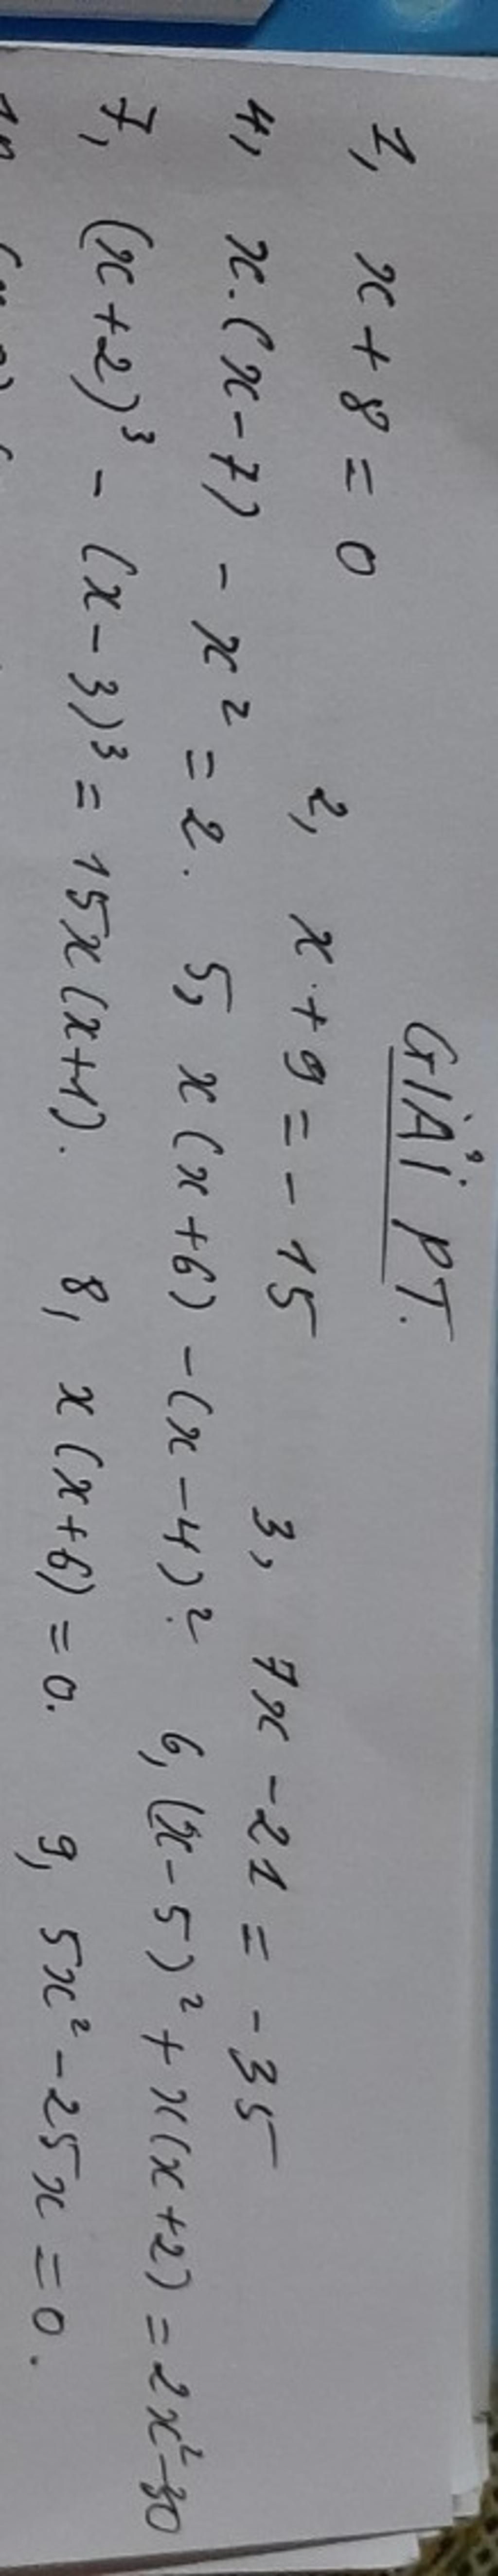 GIẢI PT.
1, x + 8 = 0 2, x + 9 = - 15 3, 7x - 21 = - 35
4, x.(x - 7) - x² = 2. 5, x(x + 6) - (x - 4)². 6, (x - 5)² + x(x + 2) = 2x² - 30
7, (x + 2)³ - (x - 3)³ = 15x(x + 1). 8, x(x + 6) = 0. 9, 5x² - 25x = 0.